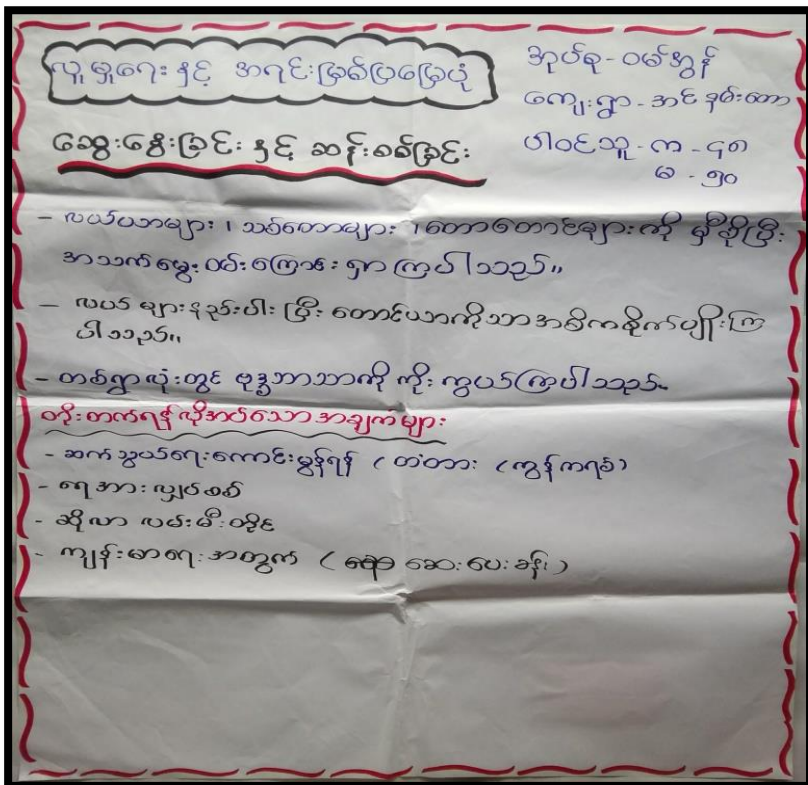 လူမှုရေး နှင့် အရင်းမြစ်ပြမြေပုံ
ဆွေးနွေးခြင်း နှင့် ဆန်းစစ်ခြင်း
အုပ်စု - ဝမ်အွန်
ကျေးရွာ - အင်နမ်းတာ
ပါဝင်သူ - ကျာ - ၄၈
မ - ၅၀
- လယ်ယာများ ၊ သစ်တောများ ၊ တောတောင်များကို မှီခိုပြီး
အသက်မွေးဝမ်းကြောင်း ရှာကြပါသည်။
- လယ်များနည်းပါးပြီး တောင်ယာကိုသာအဓိကစိုက်ပျိုးကြ
ပါသည်။
- တစ်ရွာလုံးတွင် ဗုဒ္ဓဘာသာကို ကိုးကွယ်ကြပါသည်။
တိုးတက်ရန်လိုအပ်သောအချက်များ
- ဆက်သွယ်ရေးကောင်းမွန်ရန် (တံတား (ကွန်ကရစ်)
- ရေအားလျှပ်စစ်
- ဆိုလာ လမ်းမီးတိုင်
- ကျန်းမာရေးအတွက် ( ဆေးပေးခန်း )